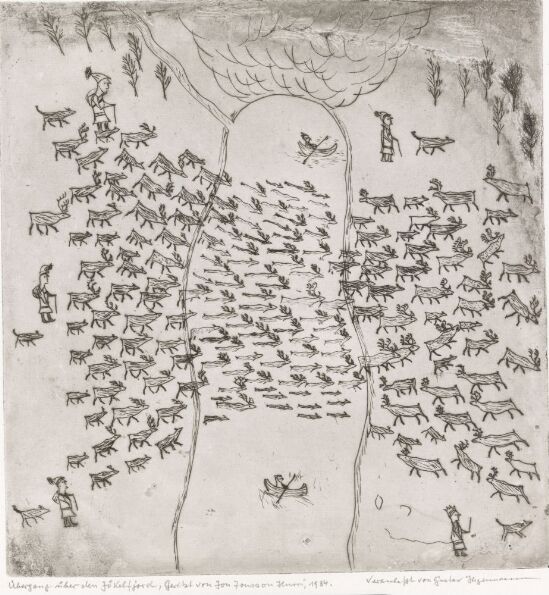 Übergang über den Jökelfjord, Geritzt von Jon Jonsson Hurri, 1934. Veranlaßt von Gustav Hagemann